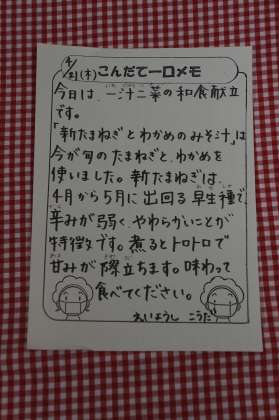 4/21(木)こんだて一口メモ
今日は、一汁二菜の和食献立
です。
「新たまねぎとわかめのみそ汁」は
今が旬のたまねぎと、わかめを
使いました。新たまねぎは、
4月から5月に出回る早生種で、
辛みが弱く、やわらかいことが
特徴です。煮るとトロトロで
甘みが際立ちます。味わって
食べてください。
えいようし こうだ